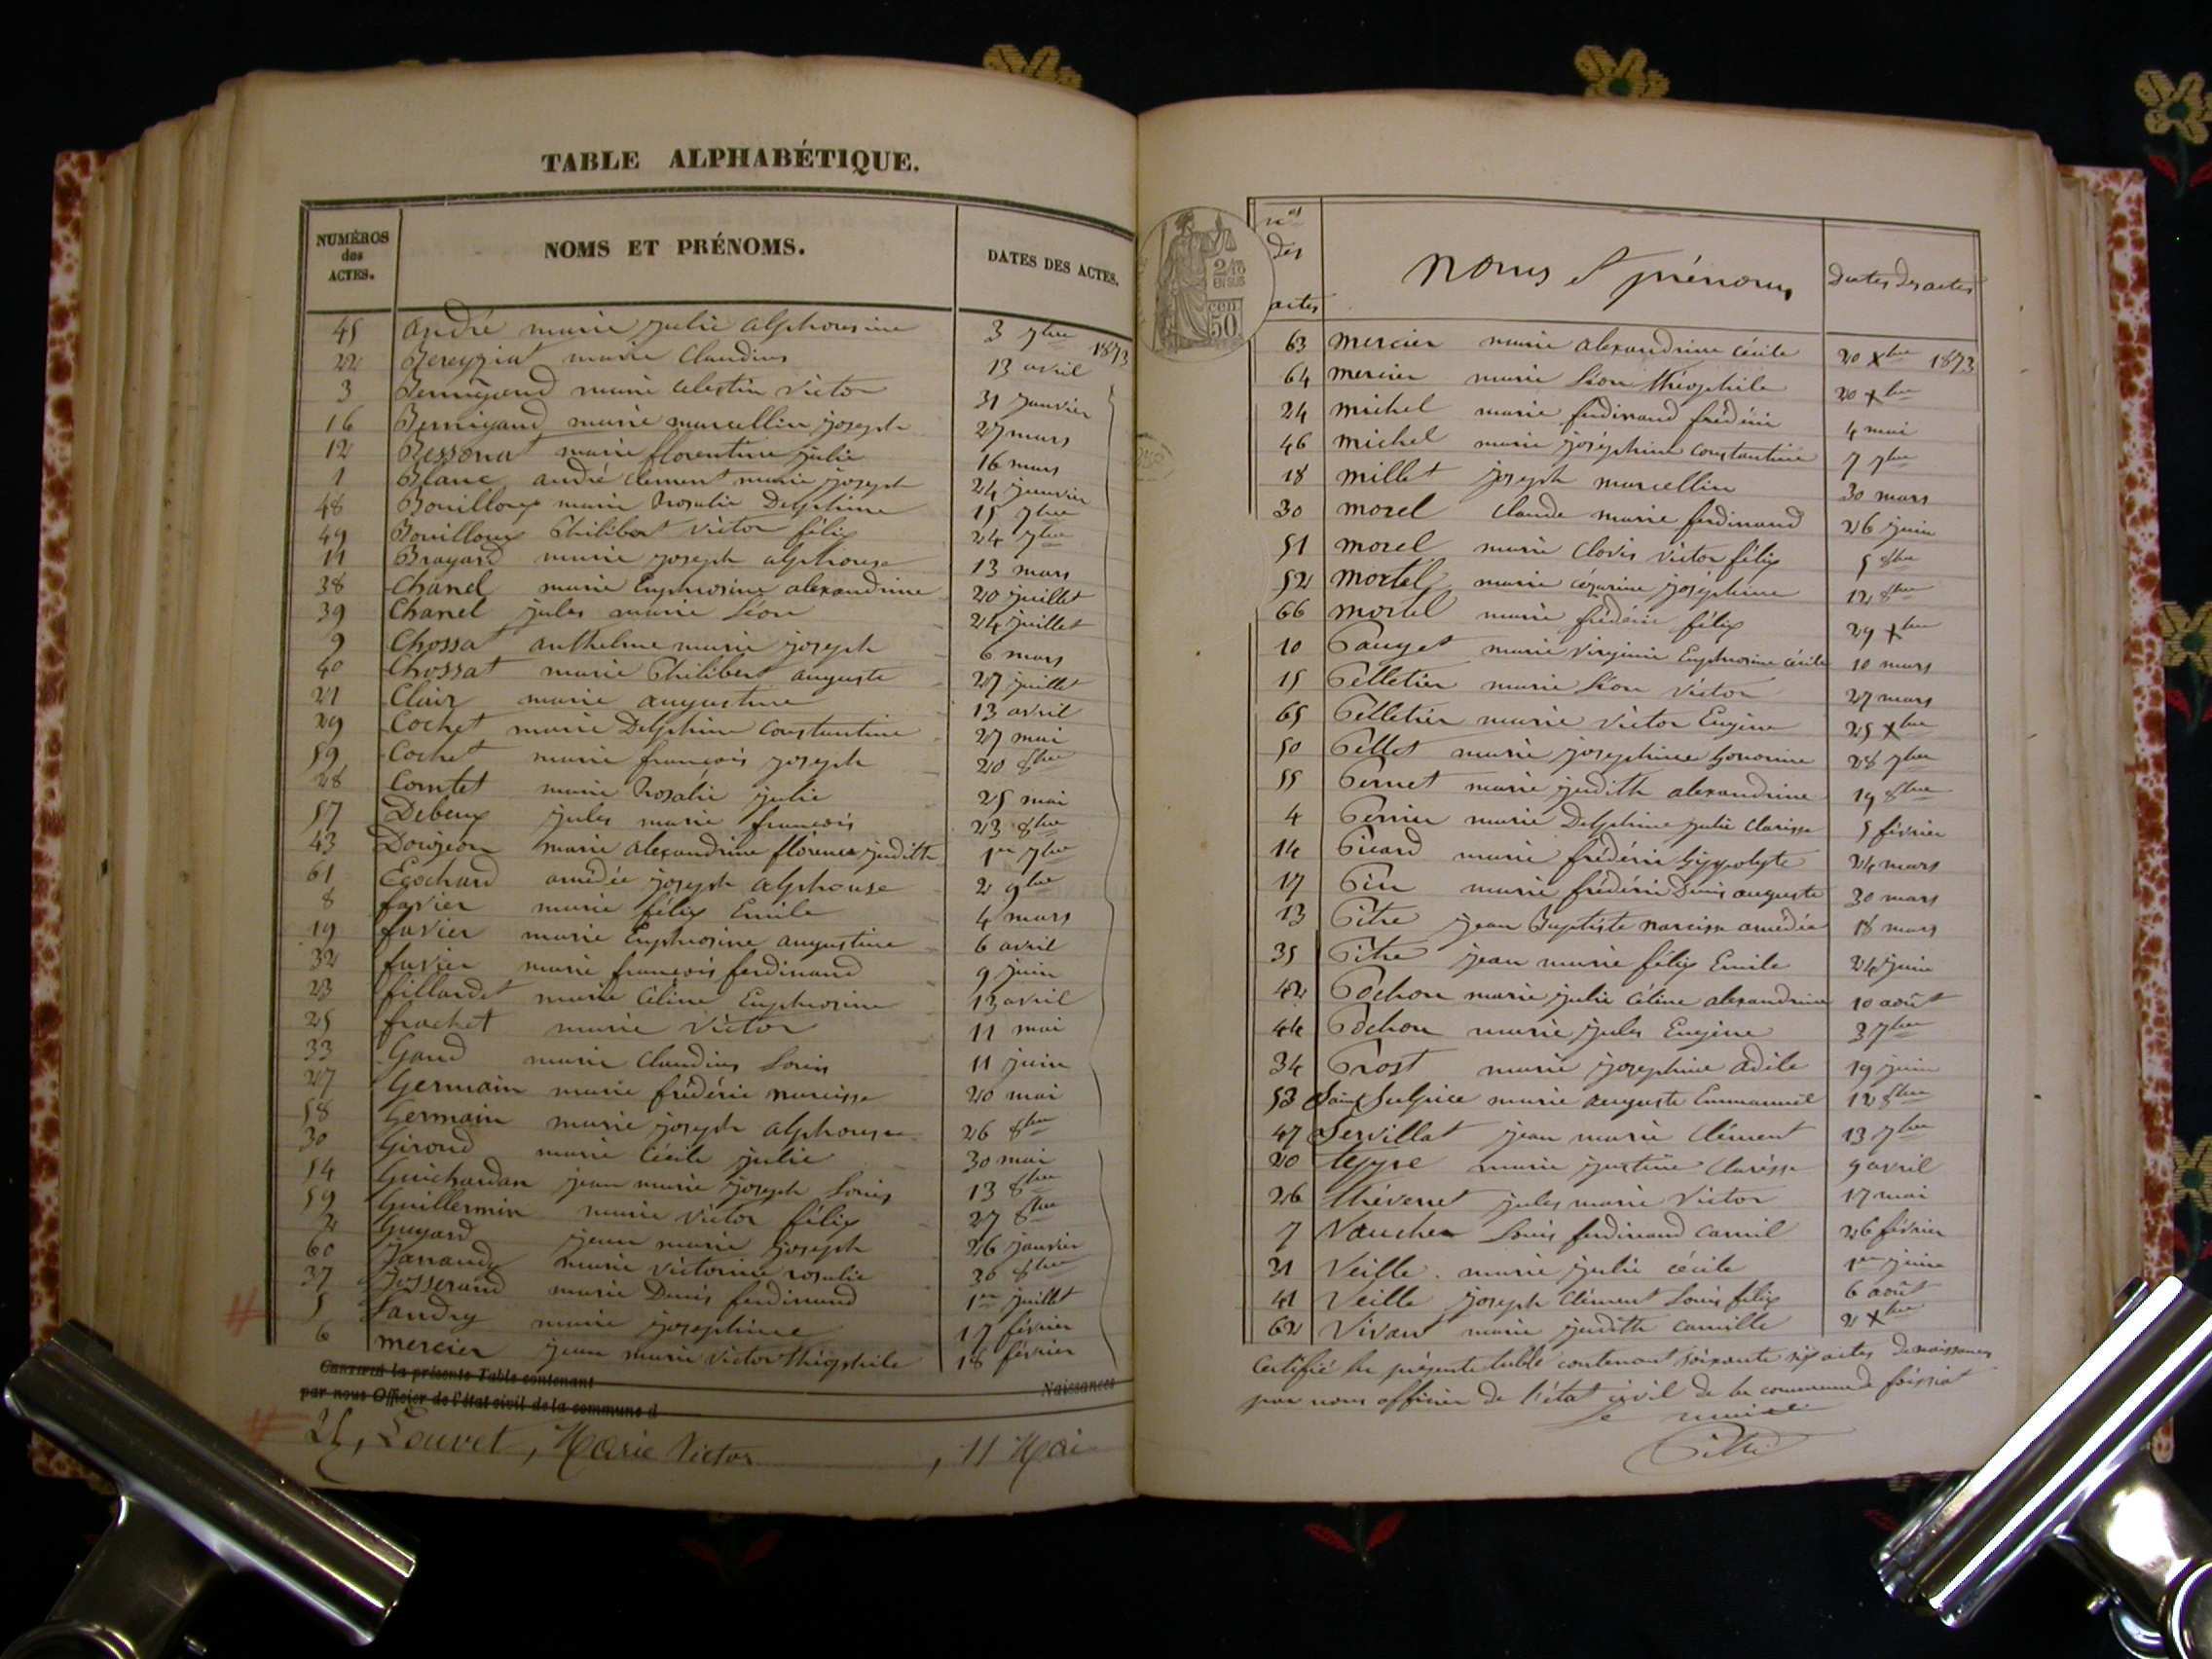 TABLE ALPHABÉTIQUE.
NUMÉROS des ACTES. NOMS ET PRÉNOMS. DATES DES ACTES.
45 andré marie julie alphonsine 3 7bre 1873
22 Bereyziat marie Claudius 13 avril
3 marie celestin victor 31 janvier
16 marie marcellin joseph 27 mars
12 marie florentine julie 16 mars
1 Blanc andré clement marie joseph 24 janvier
48 Bouilloux marie Rosalie Delphine 15 7bre
49 Bouilloux Philibert victor félix 24 7bre
11 Brayard marie joseph alphonse 13 mars
38 Chanel marie Euphrosine alexandrine 20 juillet
39 Chanel jules marie Léon 24 juillet
9 Chossat anthelme marie joseph 6 mars
40 Chossat marie Philibert auguste 27 juillet
21 Clair marie augustine 13 avril
29 Cochet marie Delphine constantine 27 mai
59 Cochet marie françois joseph 20 8bre
28 Comtet marie Rosalie julie 25 mai
57 Debeux jules marie françois 23 8bre
43 Doujeon marie alexandrine florence judith 1er 7bre
61 Ecochard amédée joseph alphonse 2 9bre
8 favier marie félix Emile 4 mars
19 favier marie Euphrosine augustine 6 avril
32 favier marie françois ferdinand 9 juin
23 fillardet marie Céline Euphrosine 13 avril
25 frachet marie victor 11 mai
33 Gand marie Claudius Louis 11 juin
27 Germain marie frédéric narcisse 20 mai
58 Germain marie joseph alphonse 26 8bre
30 Giroud marie Cécile julie 30 mai
54 Guichardan jean marie joseph Louis 13 8bre
59 Guillermin marie victor félix 27 8bre
2 Guyard jean marie joseph 26 janvier
60 marie victorine rosalie 30 8bre
37 Josserand marie Denis ferdinand 1er juillet
5 Landry marie josephine 17 février
6 mercier jean marie victor théophile 18 février
CERTIFIÉ la présente Table contenant Naissances
par nous Officier de l'état civil de la commune d
25, Louvet, Marie Victor, 11 Mai
2/10 EN SUS
cen. 50
nos des actes noms et prénoms dates des actes
63 mercier marie alexandrine cécile 20 xbre 1873
64 mercier marie Léon théophile 20 xbre
24 michel marie ferdinand frédéric 4 mai
46 michel marie joséphine constantine 7 7bre
18 millet joseph marcellin 30 mars
30 morel claude marie ferdinand 26 juin
51 morel marie clovis victor félix 5 8bre
52 mortel marie cézarine joséphine 12 8bre
66 mortel marie frédéric félix 29 xbre
10 Pauget marie virginie Euphrosine cécile 10 mars
15 Pelletier marie Léon victor 27 mars
65 Pelletier marie victor Eugène 25 xbre
50 Pellet marie josephine honorine 28 7bre
55 Pernet marie judith alexandrine 19 8bre
4 Perrier marie Delphine julie clarisse 5 février
14 Picard marie frédéric hyppolyte 24 mars
17 Pin marie frédéric Denis auguste 30 mars
13 Pitre jean Baptiste narcisse amédée 18 mars
35 Pitre jean marie félix Emile 24 juin
42 Pochon marie julie céline alexandrine 10 août
44 Pochon marie jules Eugène 3 7bre
34 Prost marie josephine adèle 19 juin
53 Saint Sulpice marie auguste Emmanuel 12 8bre
47 Servillat jean marie clément 13 7bre
20 marie justine Clarisse 9 avril
26 thévenet jules marie victor 17 mai
7 Vaucher Louis ferdinand camil 26 février
31 Veille marie julie cécile 1er juin
41 Veille joseph Clément Louis félix 6 août
62 Vivant marie judith camille 2 xbre
Certifié la présente table contenant soixante six actes de naissances
par nous officier de l'état civil de la commune de foissiat
le maire